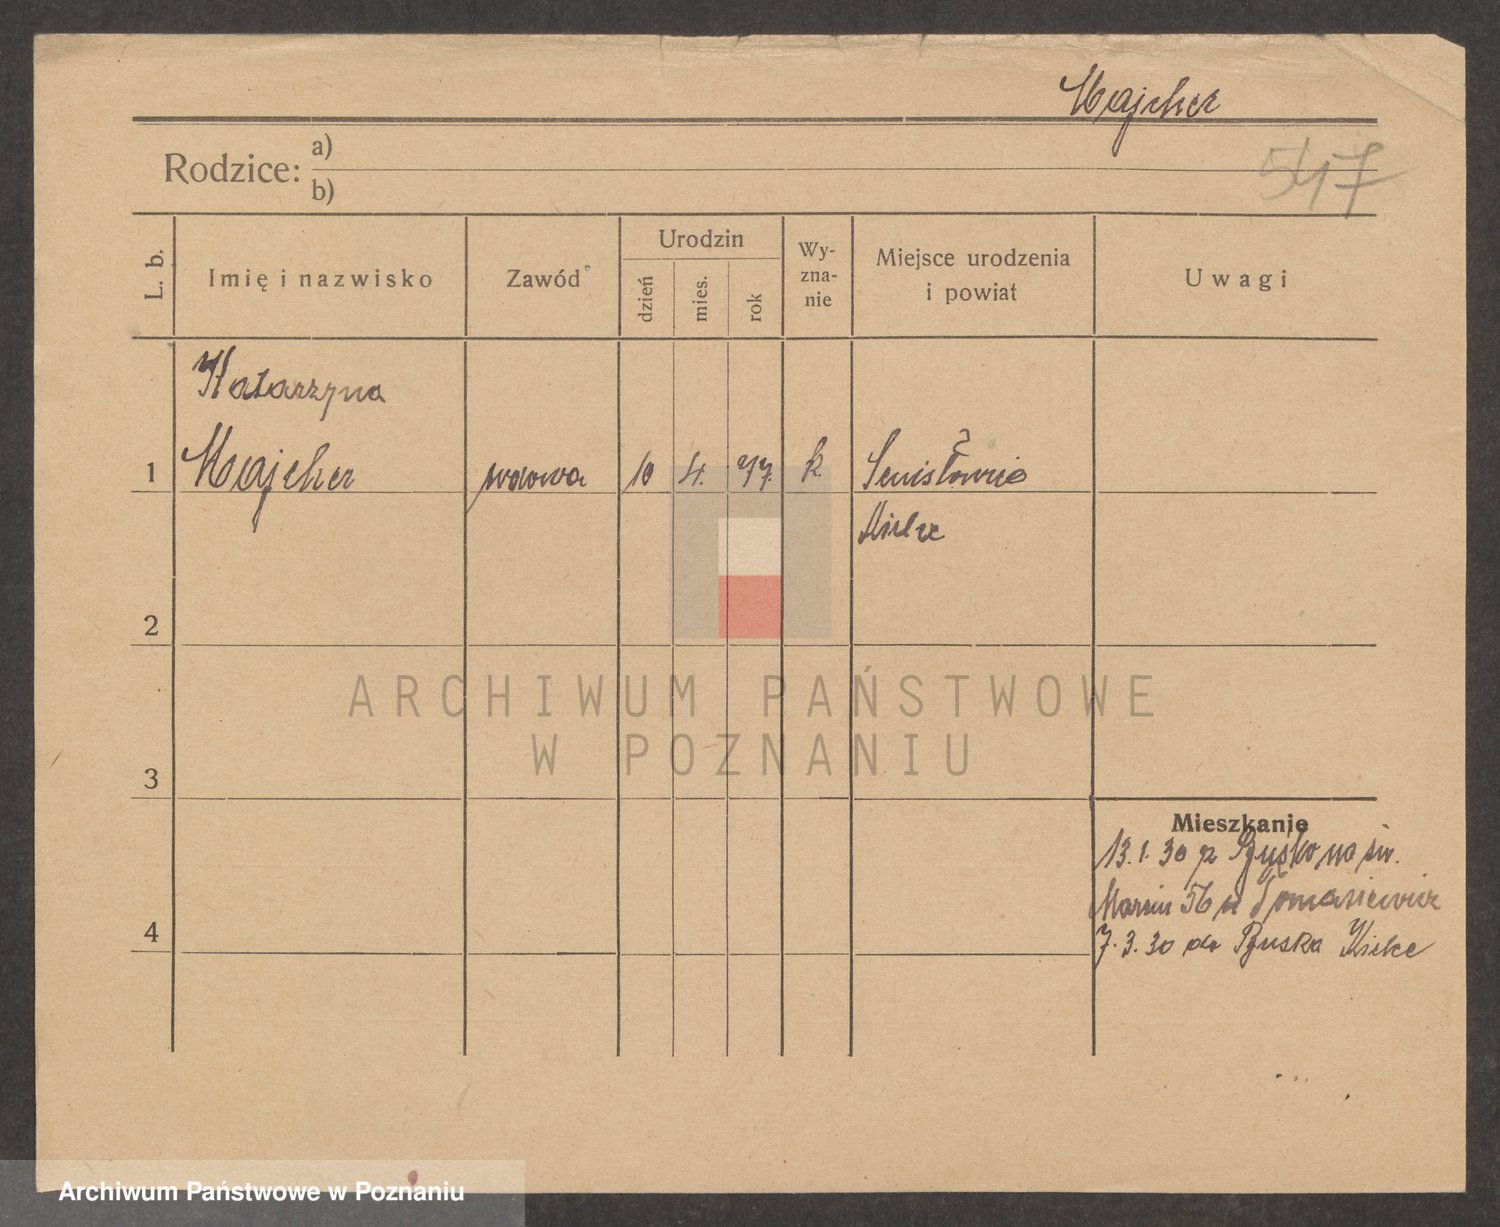 Majcher
547
Rodzice: a)
b)
L. b.
Imię i nazwisko
Zawód
Urodzin
dzień
mies.
rok
Wy-
zna-
nie
Miejsce urodzenia
i powiat
Uwagi
Katarzyna
1 Majcher wdowa 10 4. 77. k. Senisławice
Kielce
2
3
4
Mieszkanie
13.1.30 z Buska na św.
Marcin 56 u Tomasiewicz
7.3.30 do Buska Kielce
ARCHIWUM PAŃSTWOWE
W POZNANIU
Archiwum Państwowe w Poznaniu